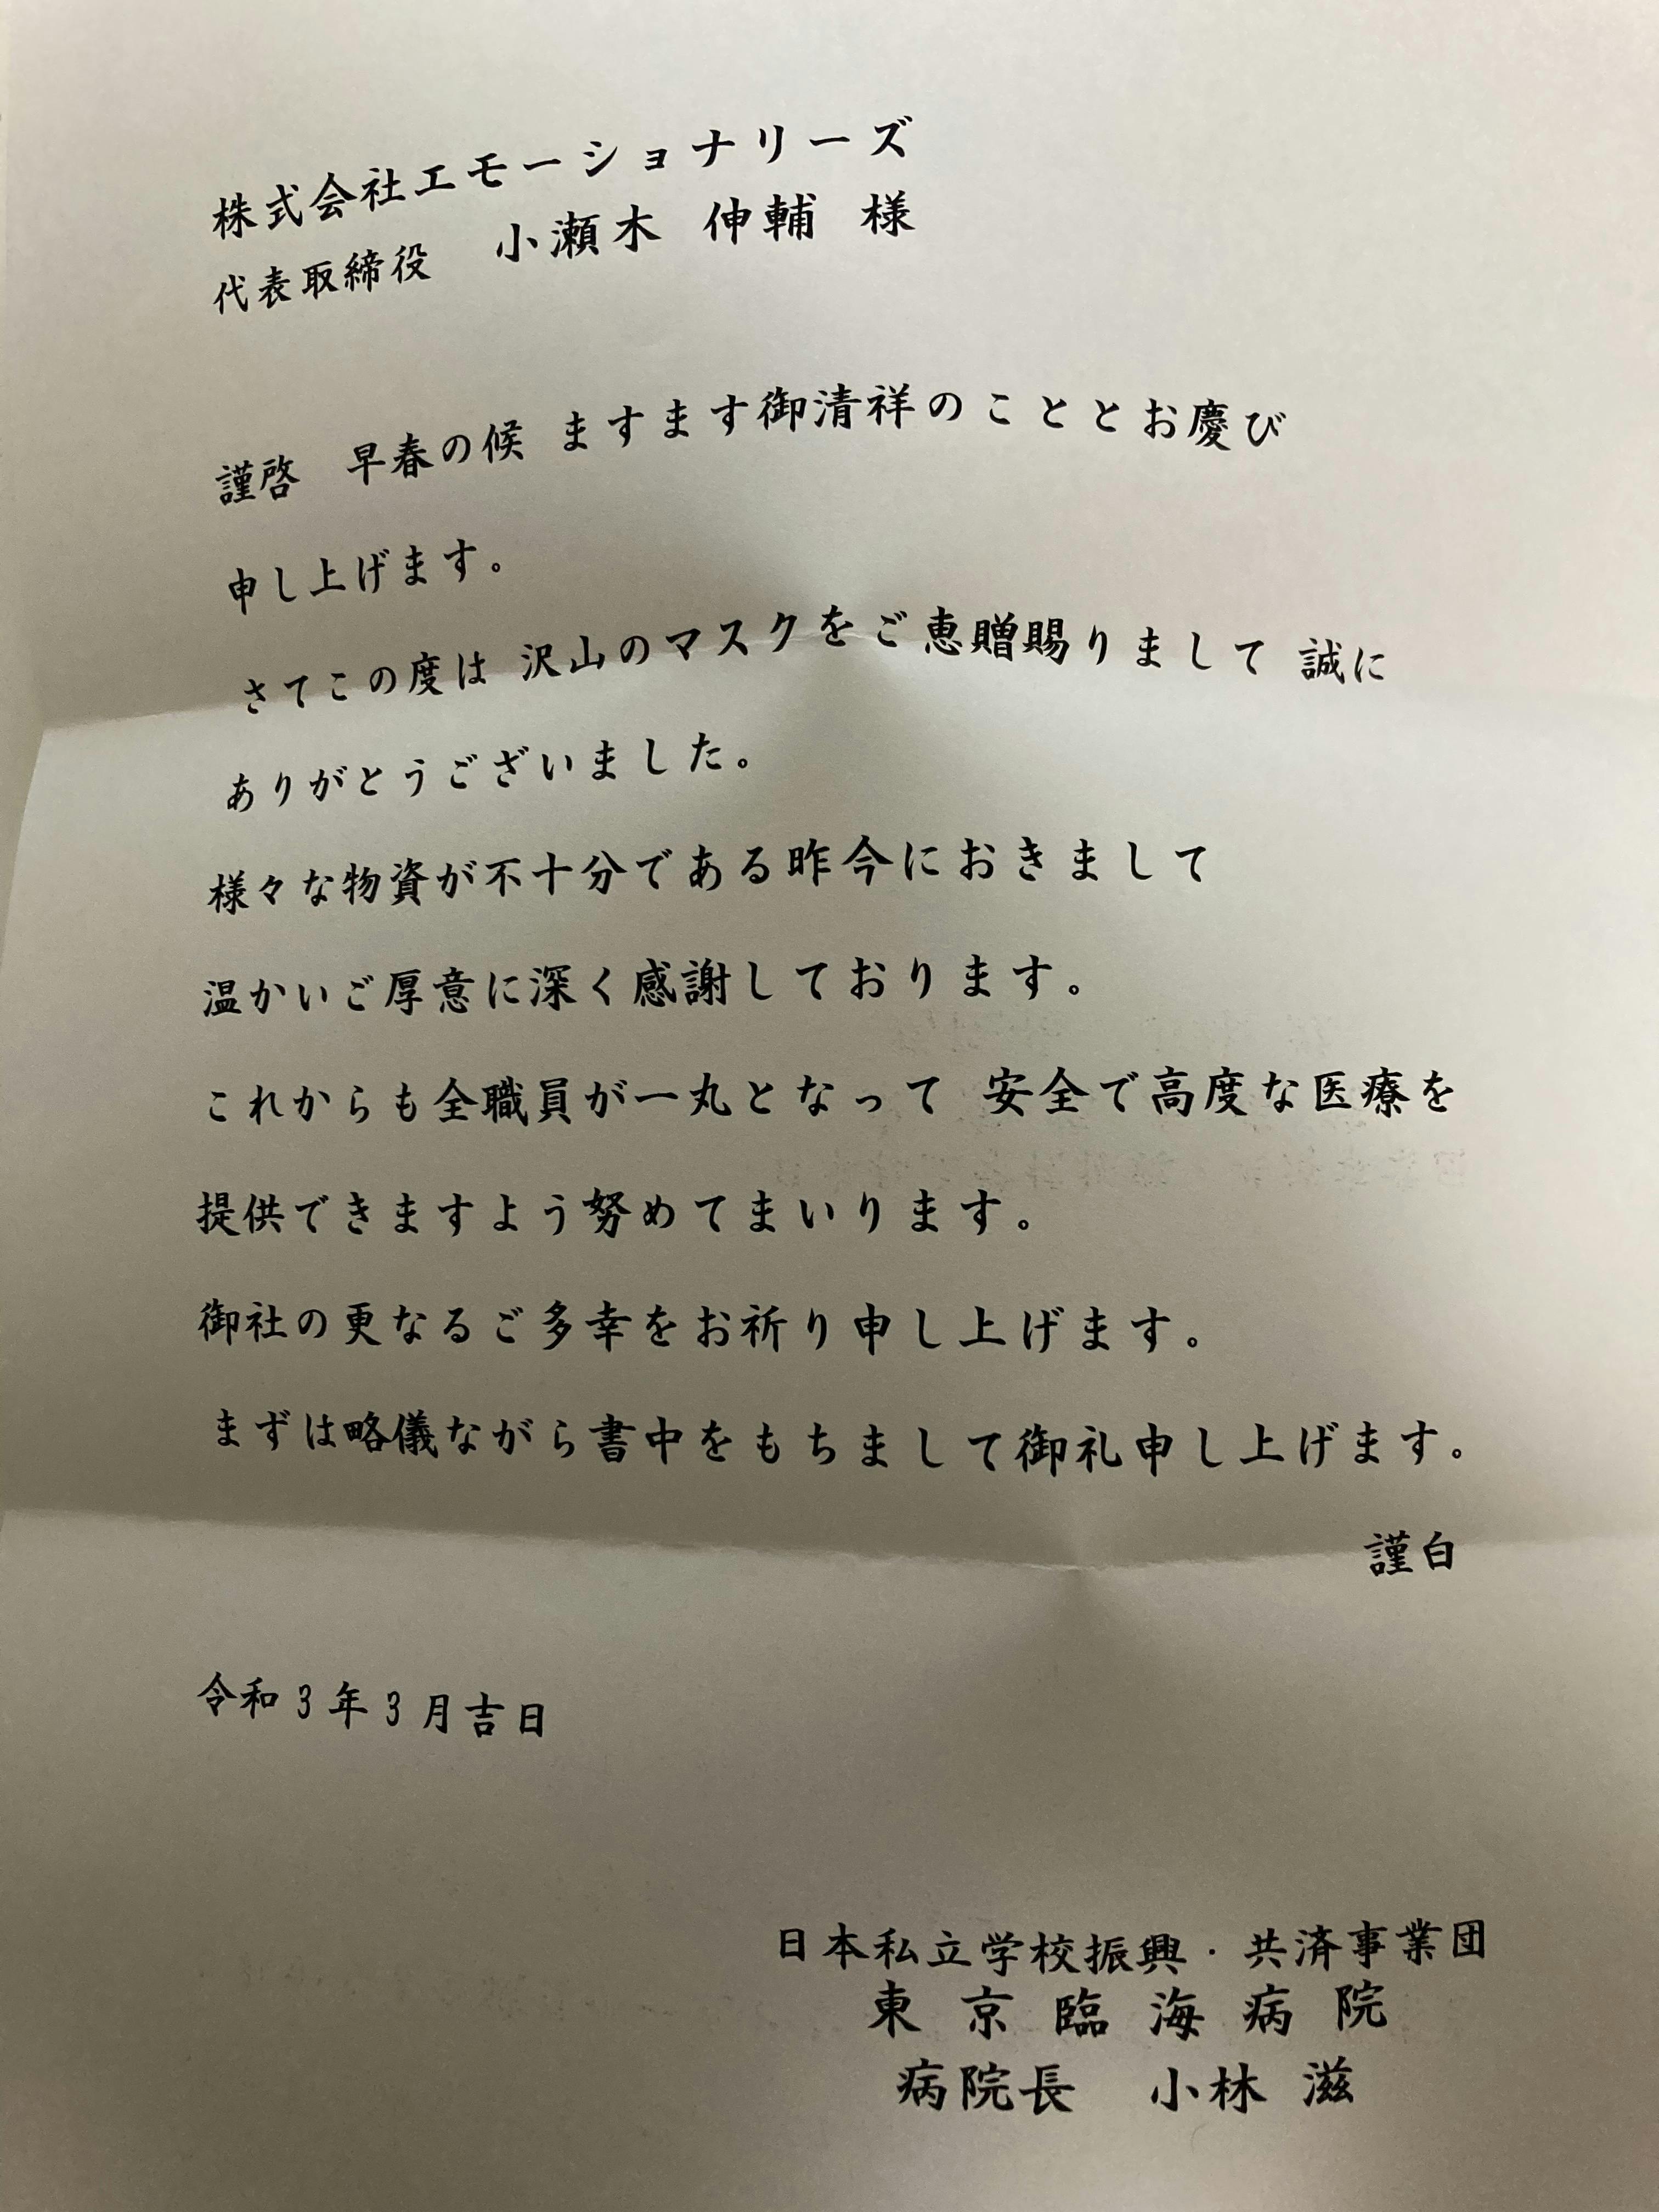 株式会社エモーショナリーズ
代表取締役 小瀬木 伸輔 様
謹啓 早春の候 ますます御清祥のこととお慶び
申し上げます。
さてこの度は 沢山のマスクをご恵贈賜りまして 誠に
ありがとうございました。
様々な物資が不十分である昨今におきまして
温かいご厚意に深く感謝しております。
これからも全職員が一丸となって 安全で高度な医療を
提供できますよう努めてまいります。
御社の更なるご多幸をお祈り申し上げます。
まずは略儀ながら書中をもちまして御礼申し上げます。
謹白
令和3年3月吉日
日本私立学校振興・共済事業団
東京臨海病院
病院長 小林 滋